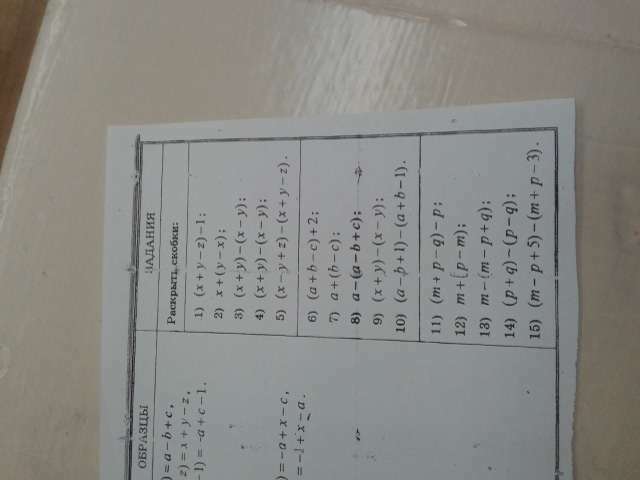 ОБРАЗЦЫ
)=a−b+c,
z)=x+y−z,
−1)=−a+c−1.
)=−a+x−c,
ЗАДАНИЯ
Раскрыть скобки:
1) (x+y−z)−1;
2) x+(y−x);
3) (x+y)−(x−y);
4) (x+y)−(x−y);
5) (x−y+z)−(x+y−z).
6) (a+b−c)+2;
7) a+(b−c);
8) a−(a−b+c);
9) (x+y)−(x−y);
10) (a−b+1)−(a+b−1).
11) (m+p−q)−p;
12) m+(p−m);
13) m−(m−p+q);
14) (p+q)−(p−q);
15) (m−p+5)−(m+p−3).